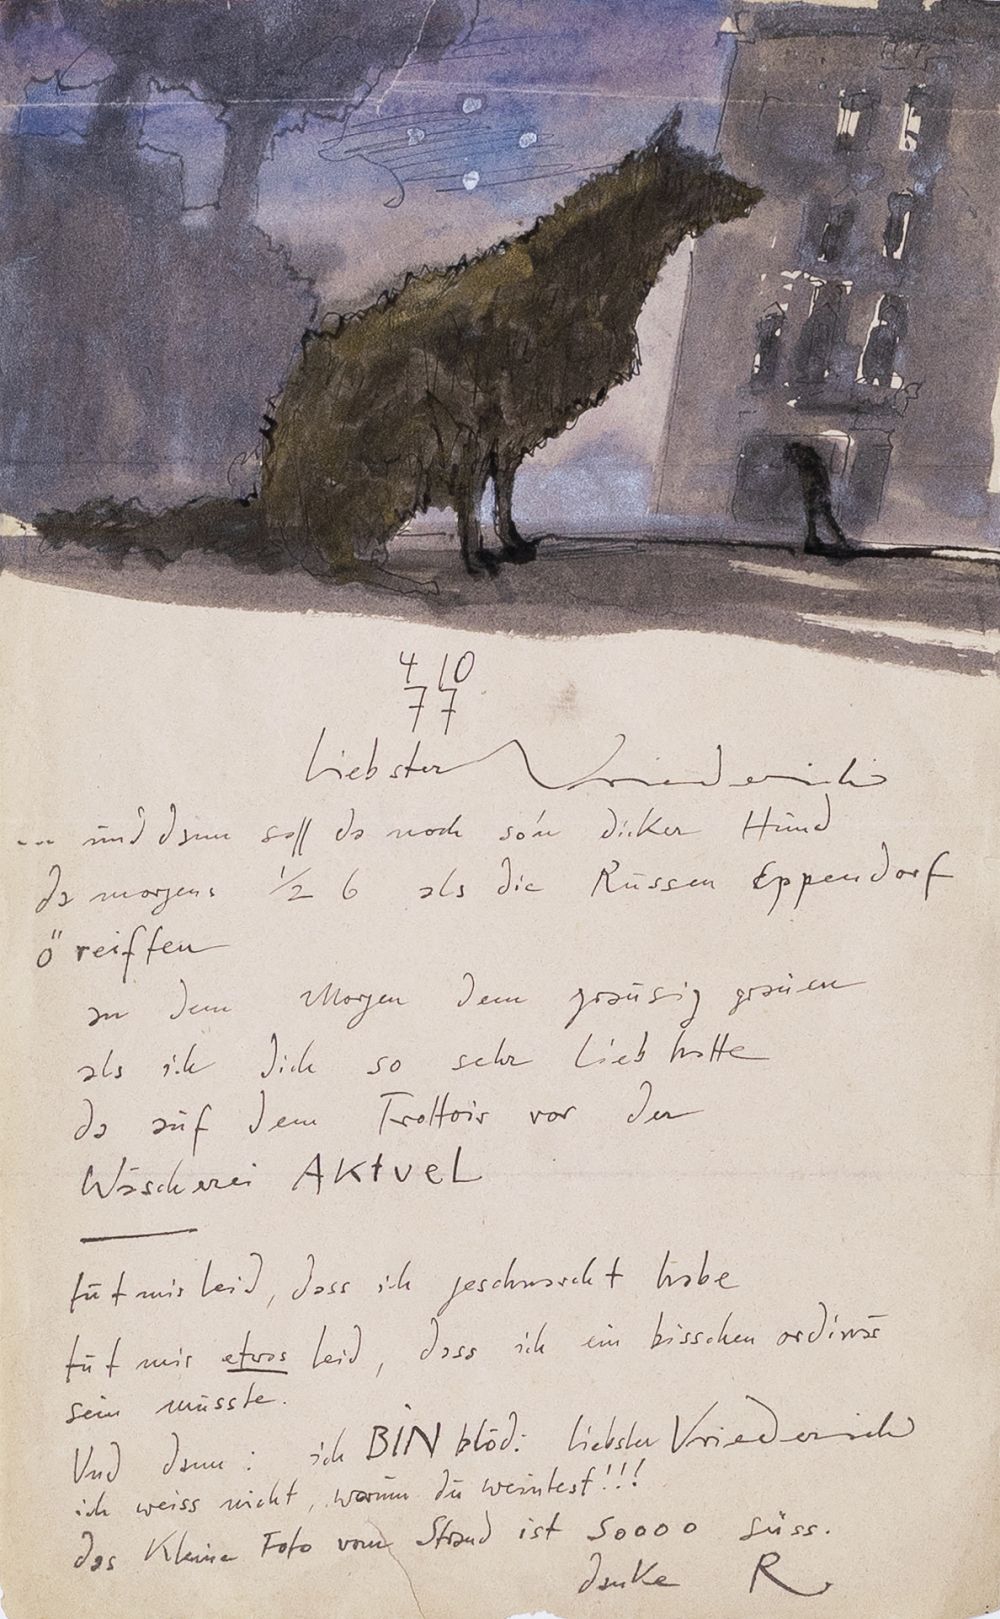 4 10
77
Liebster Vriederich
... und dann soll da noch so'n dicker Hund
da morgens 1/2 6 als die Russen Eppendorf
ö reiften
an dem Morgen dem grausig grauen
als ich dich so sehr lieb hatte
da auf dem Trottoir vor der
Wäscherei AKtueL
tut mir leid, dass ich geschnarcht habe
tut mir etwas leid, dass ich ein bisschen ordinär
sein musste.
Und dann: ich BIN blöd: liebster Vriederich
ich weiss nicht, warum du weintest!!!
das Kleine Foto vom Strand ist soooo süss.
danke R.